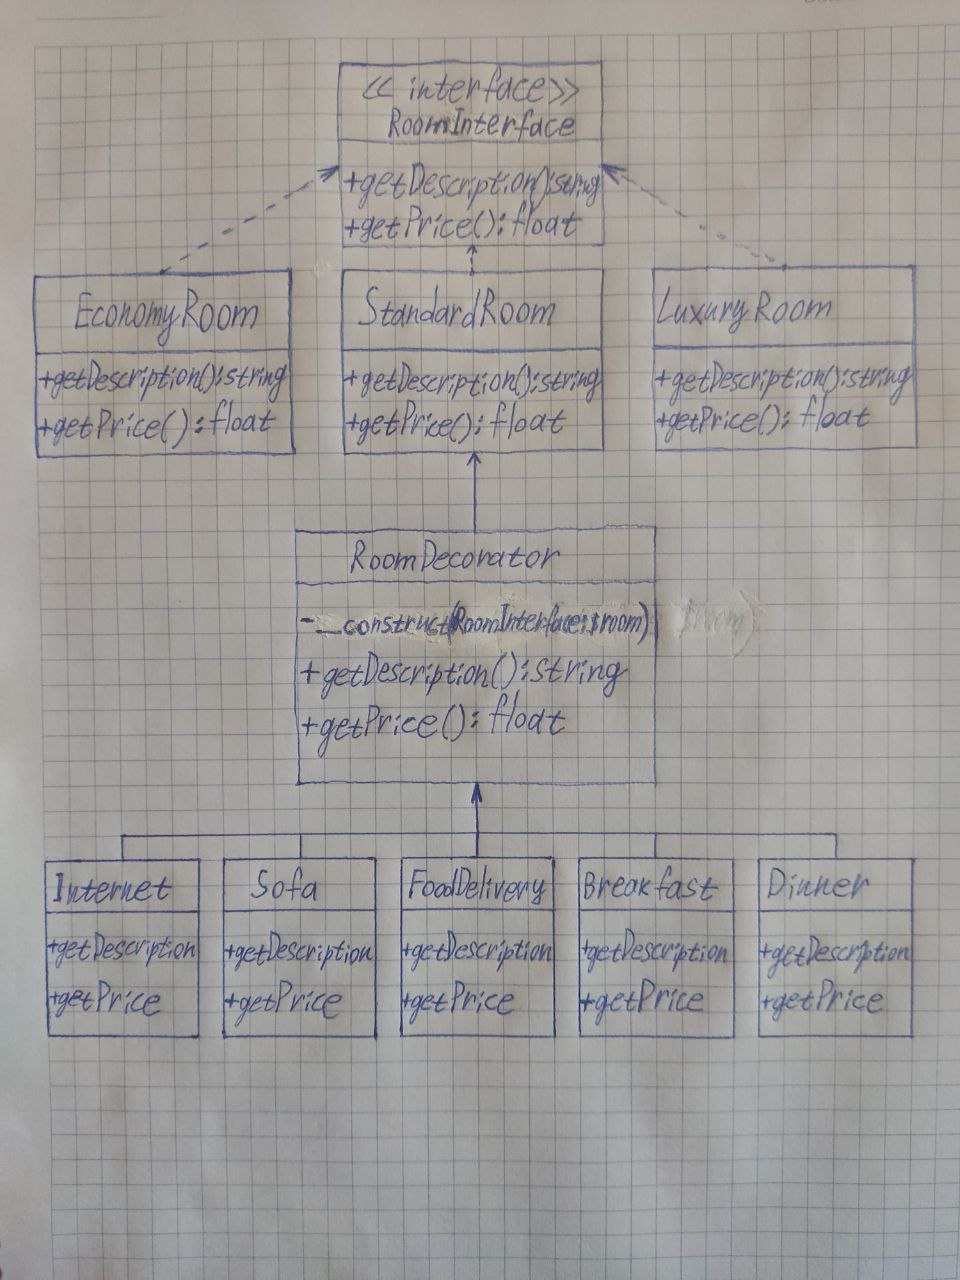 << interface >>
RoomInterface
+getDescription():string
+getPrice(): float
EconomyRoom
+getDescription():string
+getPrice(): float
StandardRoom
+getDescription():string
+getPrice(): float
LuxuryRoom
+getDescription():string
+getPrice(): float
RoomDecorator
-__construct(RoomInterface:$room)
+getDescription():string
+getPrice(): float
Internet
+getDescription
+getPrice
Sofa
+getDescription
+getPrice
FoodDelivery
+getDescription
+getPrice
Breakfast
+getDescription
+getPrice
Dinner
+getDescription
+getPrice